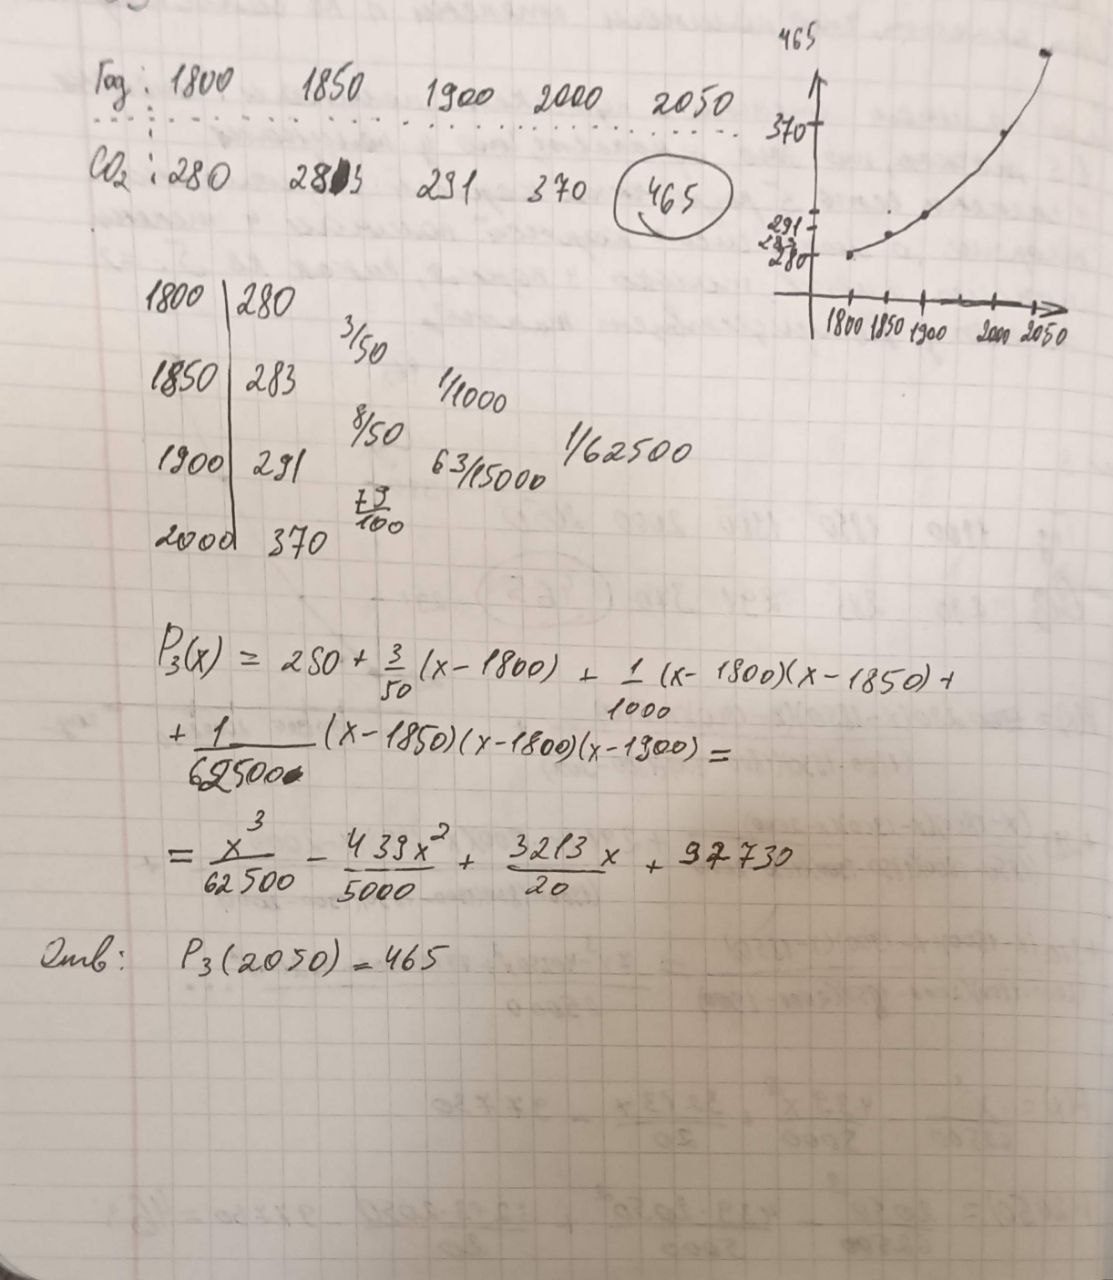 Год: 1800 1850 1900 2000 2050
CO₂: 280 283 291 370 465
465
370
291
283
280
1800 1850 1900 2000 2050
1800 280
3/50
1850 283 1/1000
8/50 1/62500
1900 291 63/15000
79/100
2000 370
P₃(x) = 280 + 3/50 (x - 1800) + 1/1000 (x - 1800)(x - 1850) +
+ 1/62500 (x - 1850)(x - 1800)(x - 1900) =
= x³/62500 - 439x²/5000 + 3213/20 x + 97730
Отв: P₃(2050) = 465